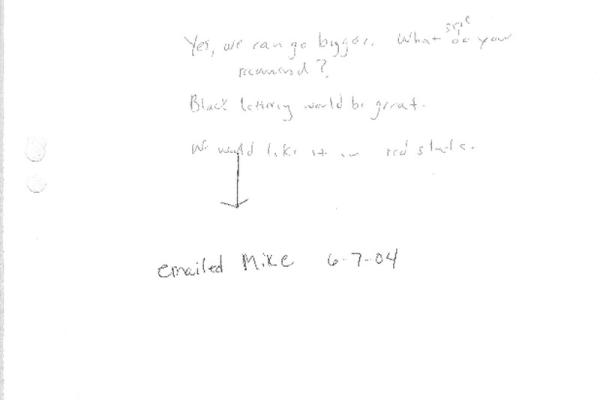 Yes, we can go bigger. What size do you
recomend?
Black lettering would be great.
We would like it in red slate.
emailed Mike 6-7-04